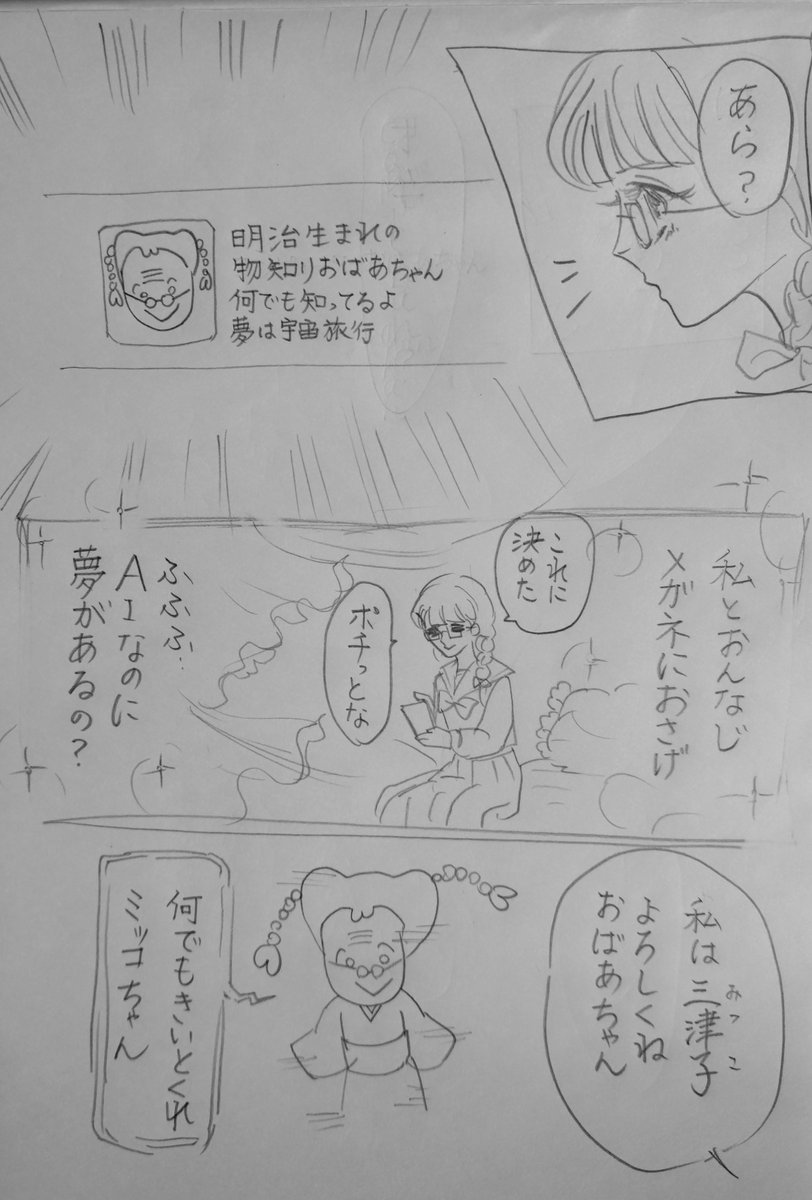 あら?
明治生まれの
物知りおばあちゃん
何でも知ってるよ
夢は宇宙旅行
私とおんなじ
メガネにおさげ
これに
決めた
ポチっとな
ふふふ…
AIなのに
夢があるの?
私は三津子
みつこ
よろしくね
おばあちゃん
何でもきいとくれ
ミツコちゃん